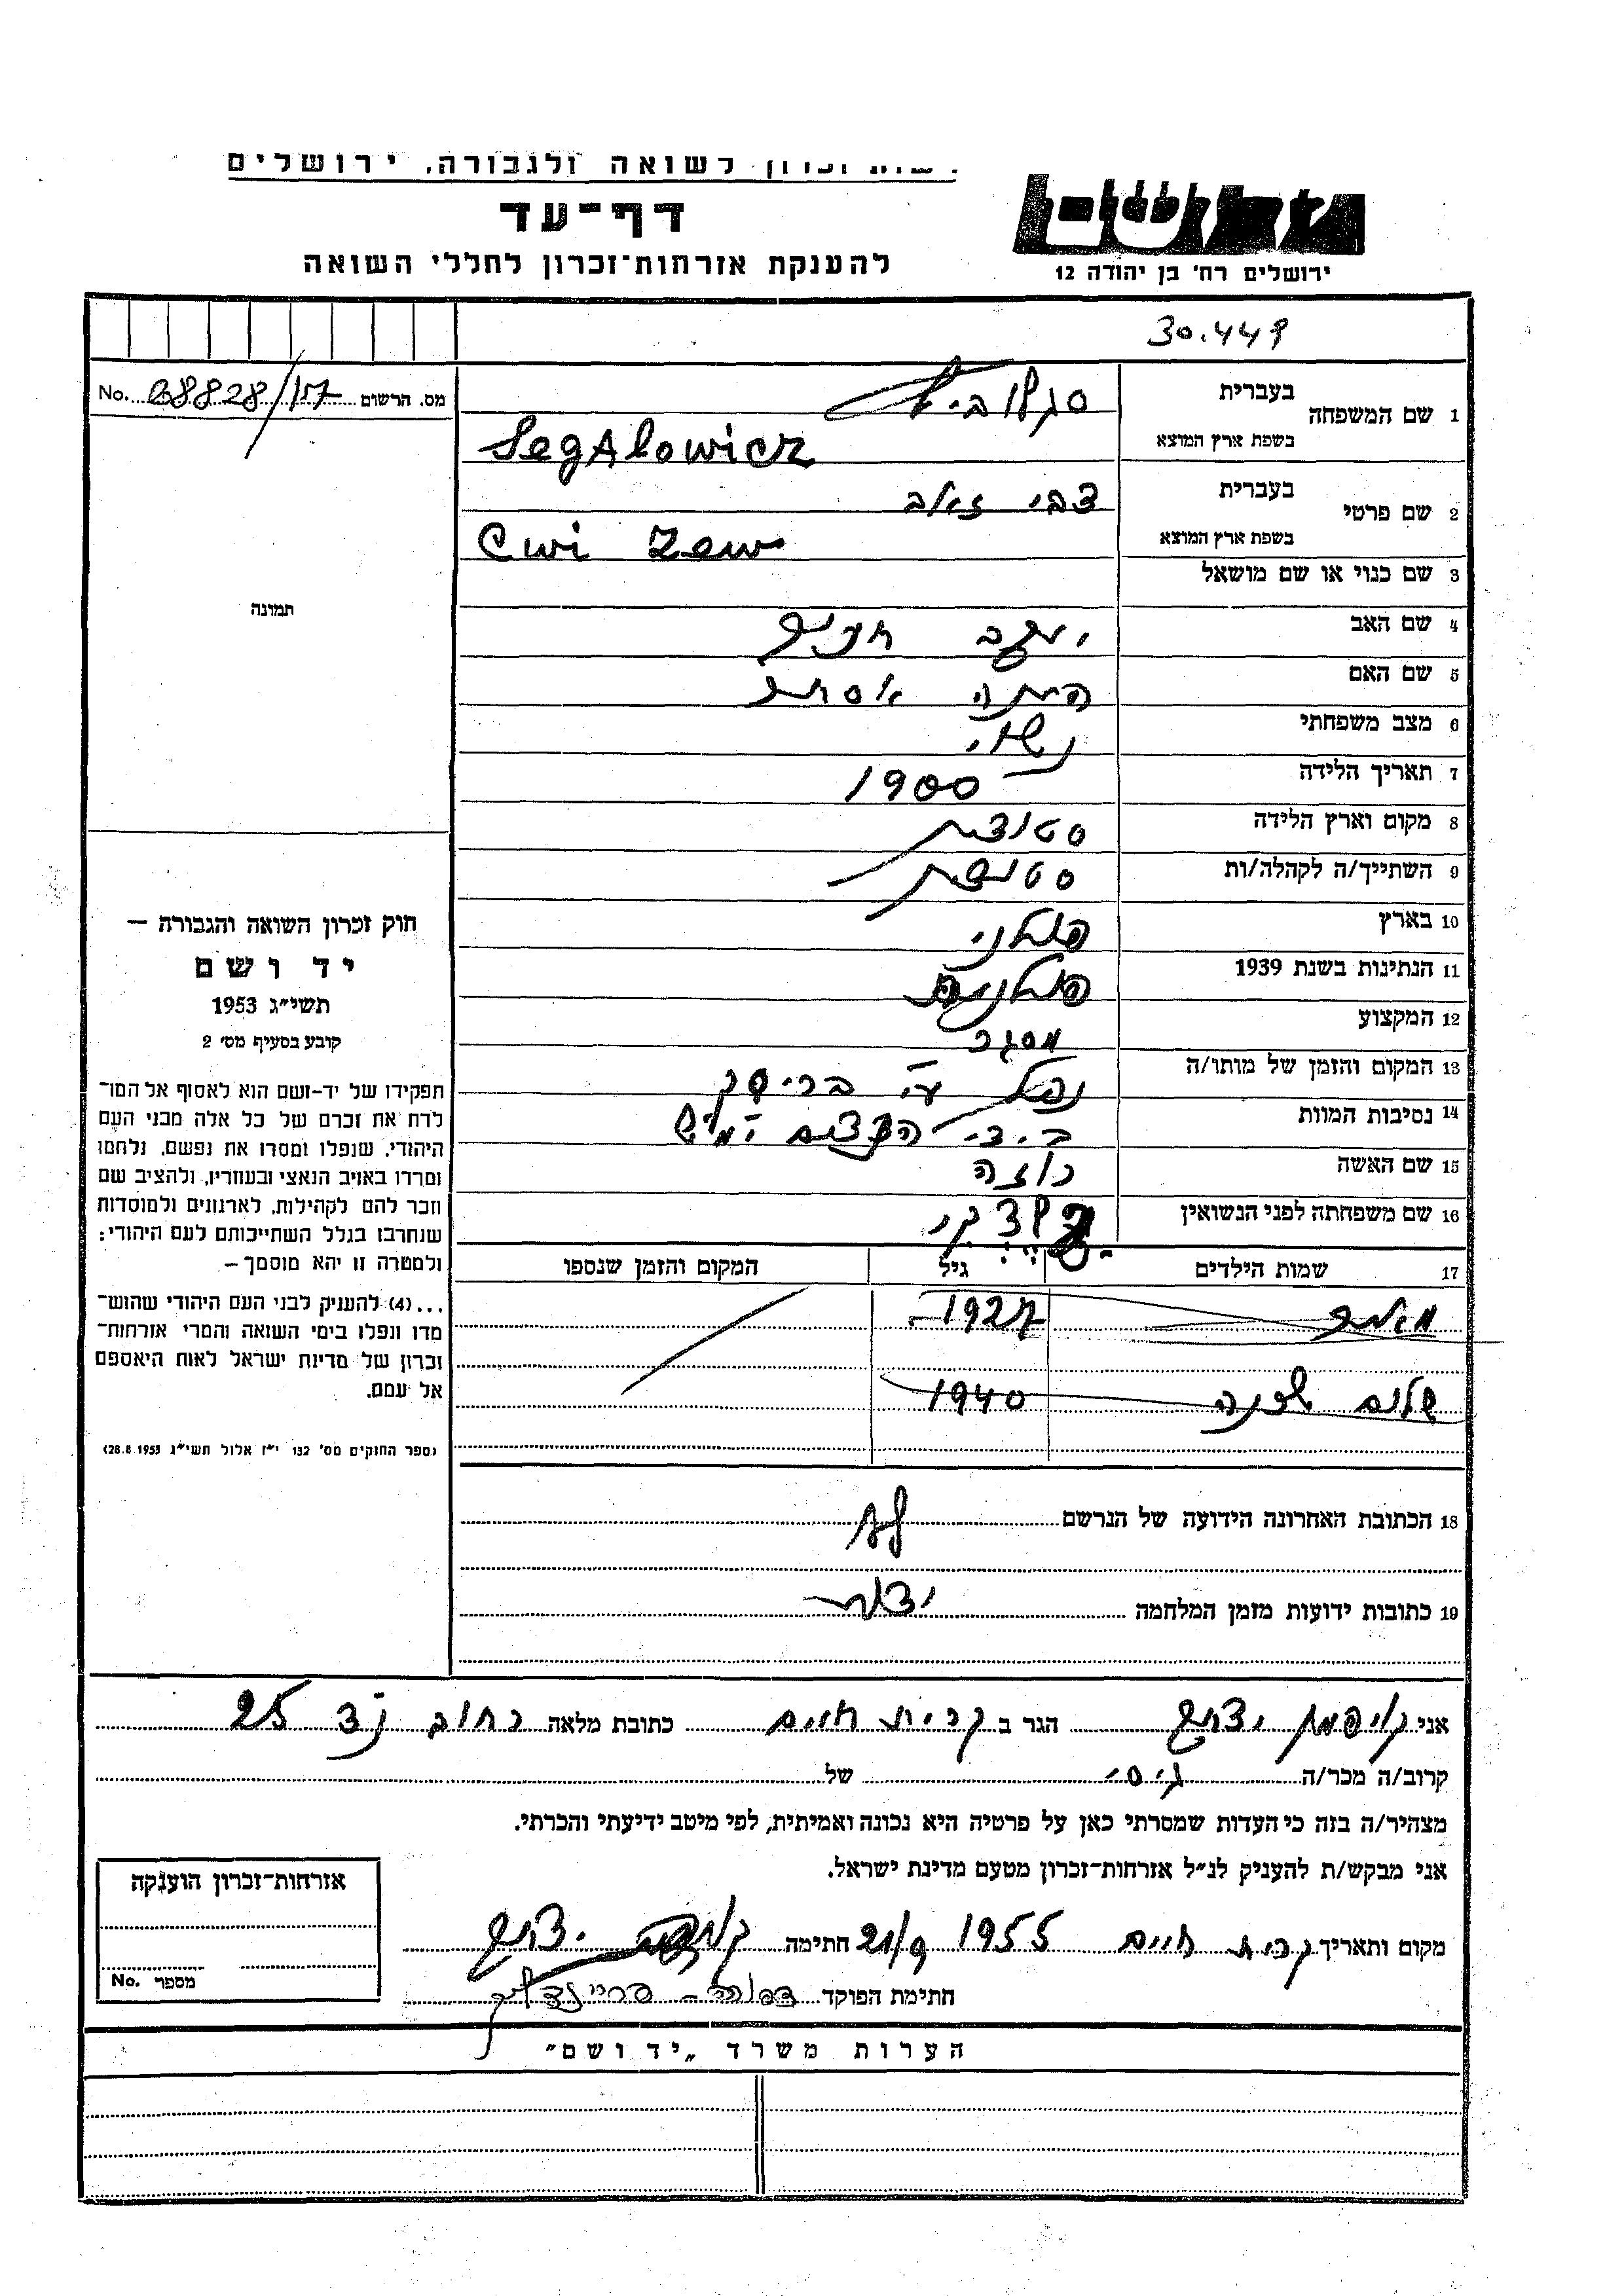 לשואה ולגבורה, ירושלים
דף-עד
להענקת אזרחות-זכרון לחללי השואה
ירושלים רח' בן יהודה 12
30.449
מס. הרשום No. 28828/17
1 שם המשפחה בעברית סגלוביץ
בשפת ארץ המוצא Segalowicz
2 שם פרטי בעברית צבי זאב
בשפת ארץ המוצא Cwi Zew
3 שם כנוי או שם מושאל
תמונה
4 שם האב יעקב חיים
5 שם האם אסתר
6 מצב משפחתי נשוי
7 תאריך הלידה 1900
8 מקום וארץ הלידה סטוצין
9 השתייך/ה לקהלה/ות סטוצין
10 בארץ פולני
11 הנתינות בשנת 1939 פולנית
12 המקצוע מסגר
13 המקום והזמן של מותו/ה נפל ע"י בריסק
14 נסיבות המוות בידי
15 שם האשה רוזה
16 שם משפחתה לפני הנשואין
17 שמות הילדים גיל המקום והזמן שנספו
1927
שלום 1940
חוק זכרון השואה והגבורה –
יד ושם
תשי"ג 1953
קובע בסעיף מס' 2
תפקידו של יד-ושם הוא לאסוף אל המו־
לדת את זכרם של כל אלה מבני העם
היהודי, שנפלו ומסרו את נפשם, נלחמו
ומרדו באויב הנאצי ובעוזריו, ולהציב שם
וזכר להם לקהילות, לארגונים ולמוסדות
שנחרבו בגלל השתייכותם לעם היהודי;
ולמטרה זו יהא מוסמך –
...(4) להעניק לבני העם היהודי שהוש־
מדו ונפלו בימי השואה והמרי אזרחות־
זכרון של מדינת ישראל לאות היאספם
אל עמם.
(ספר החוקים מס' 132 י"ז אלול תשי"ג 28.8.1953)
18 הכתובת האחרונה הידועה של הנרשם
19 כתובות ידועות מזמן המלחמה
אני קויפמן יצחק הגר ב קרית חיים כתובת מלאה רחוב 25
קרוב/ה מכר/ה גיסי של
מצהיר/ה בזה כי העדות שמסרתי כאן על פרטיה היא נכונה ואמיתית, לפי מיטב ידיעתי והכרתי.
אני מבקש/ת להעניק לנ"ל אזרחות-זכרון מטעם מדינת ישראל.
מקום ותאריך קרית חיים 1955 21/9 חתימה קויפמן יצחק
חתימת הפוקד
אזרחות-זכרון הוענקה
מספר No.
הערות משרד „יד ושם"